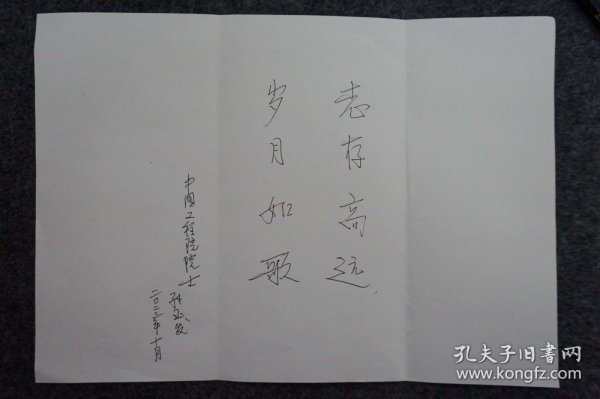 志存高远
岁月如歌
中国工程院院士
二〇二三年十月
孔夫子旧书网
www.kongfz.com